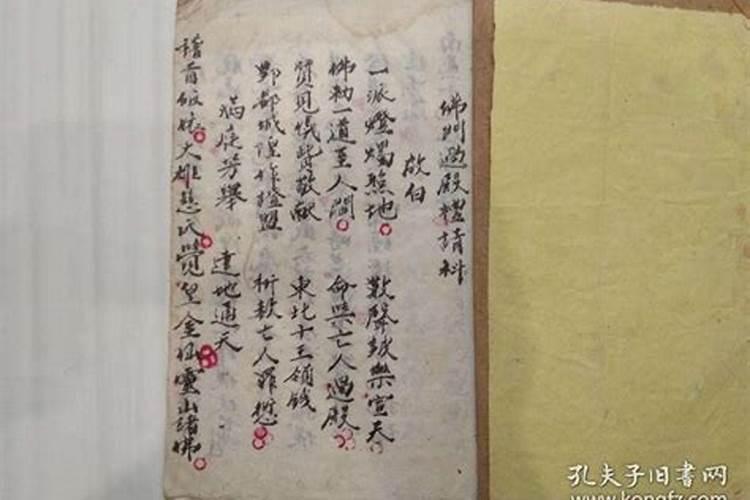 佛判過殿禮請科
啟白
一派燈燭照地 數聲鼓樂宣天
佛勅一道至人間 命與亡人過殿
賫見儀貲敬献 東北十王領錢
酆都城隍作證盟 析赦亡人罪愆
满庭芳舉 達地通天
稽首皈依大雄慈氏覺皇金仙靈山諸佛
孔夫子旧书网
www.kongfz.com